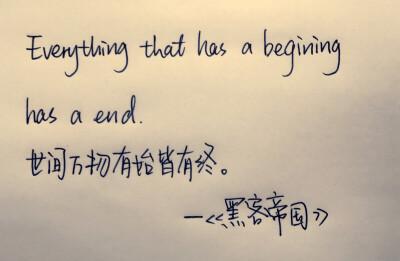 Everything that has a begining
has a end.
世间万物有始皆有终。
—《黑客帝国》